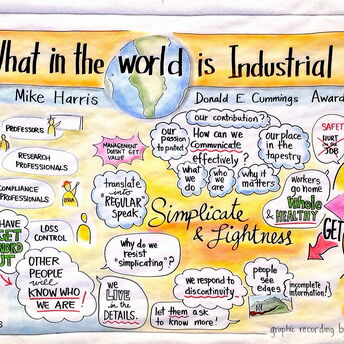 What in the world is Industrial
Mike Harris
Donald E. Cummings
Award
our contribution?
PROFESSORS
RESEARCH
PROFESSIONALS
COMPLIANCE
PROFESSIONALS
OSHA
MANAGEMENT
DOESN'T GET
VALUE
our
passion
to protect
How can we
communicate
effectively?
our place
in the
tapestry
what
we
do
who
we
are
why it
matters
SAFETY
HURT
ON THE
JOB
translate
into
"REGULAR"
speak.
workers
go home
Whole
& HEALTHY
Simplicate
& Lightness
HAVE
GET
WORD
OUT
LOSS
CONTROL
OTHER
PEOPLE
will
KNOW WHO
WE ARE!
Why do we
resist
"simplicating"?
WE
LIVE
IN THE
DETAILS.
we respond to
discontinuity
let them ask
to know more!
people
see
edges
incomplete
information!
GET
graphic recording b